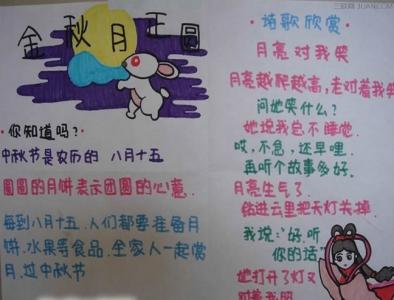 金秋月正圆
·你知道吗?·
中秋节是农历的 八月十五
圆圆的月饼表示团圆的心意.
每到八月十五.人们都要准备月
饼.水果等食品.全家人一起赏
月.过中秋节
·诗歌欣赏·
月亮对我笑
月亮越爬越高,老对着我笑
问她笑什么?
她说我总不睡觉.
哎,不急,还早哩.
再听个故事多好.
月亮生气了.
钻进云里把天灯关掉.
我说:好.听
你的话
她打开了灯又
对着我照